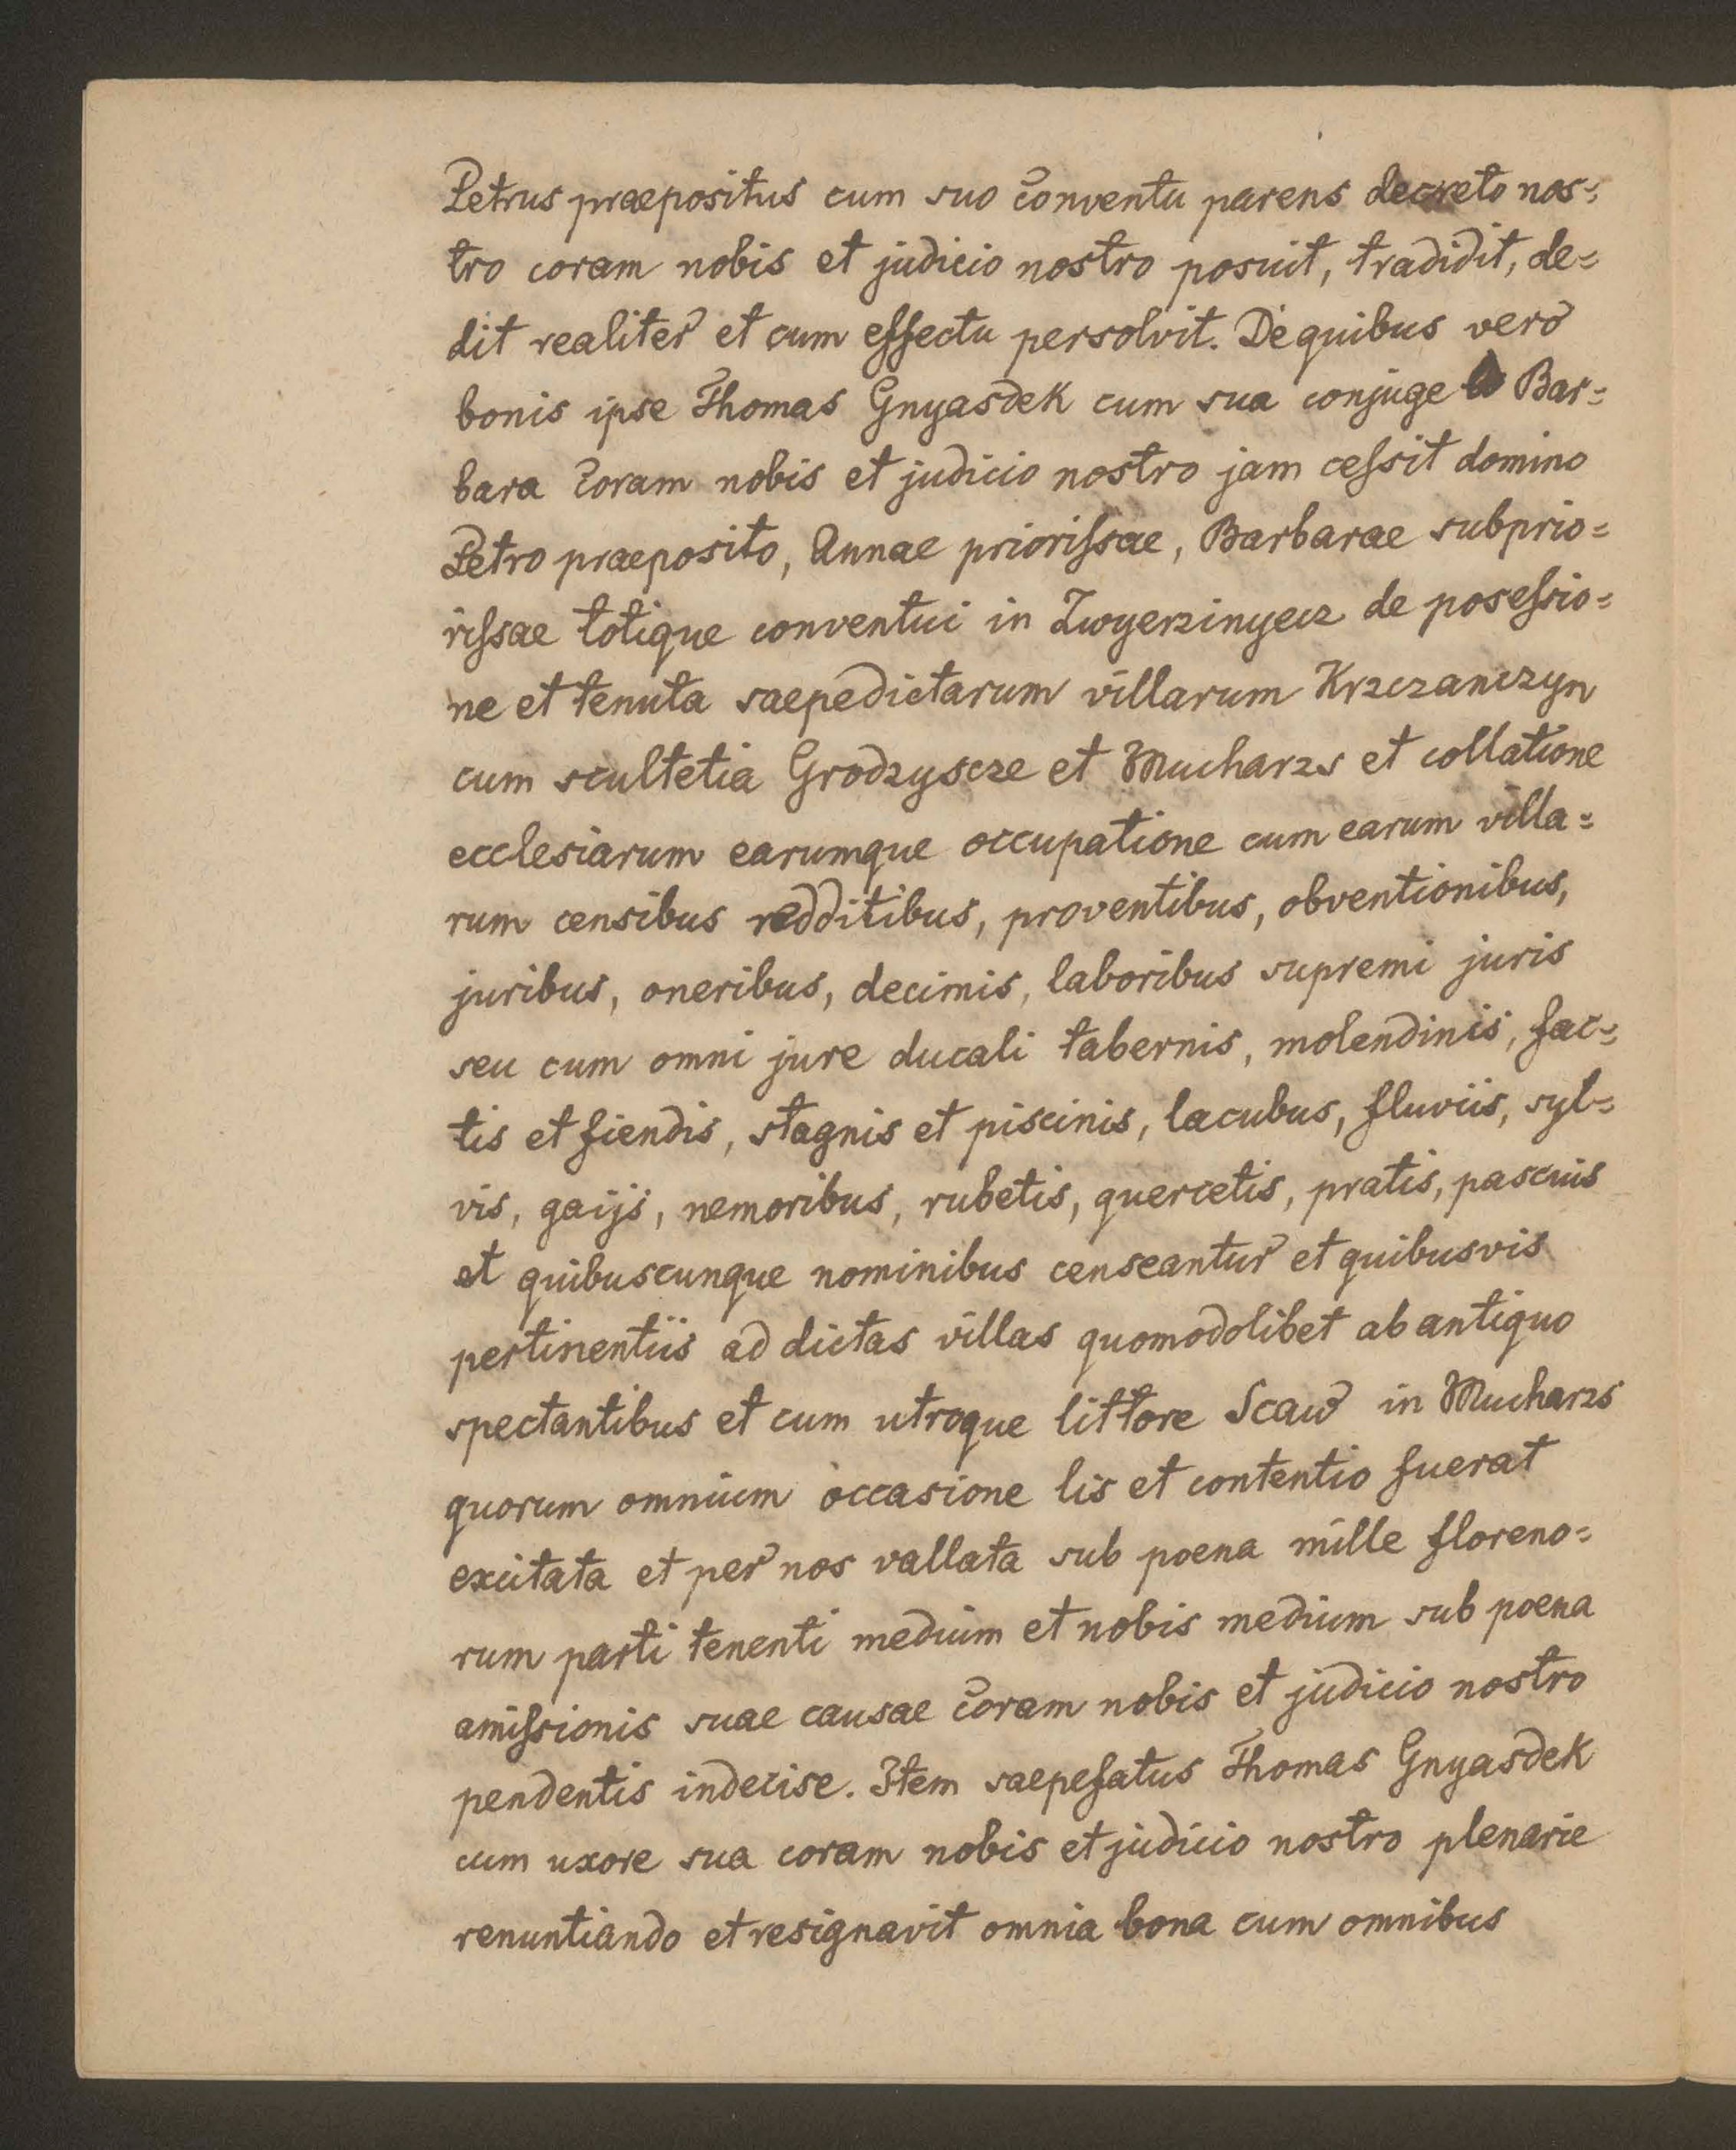 Petrus praepositus cum suo conventu parens decreto nos=
tro coram nobis et judicio nostro posuit, tradidit, de=
dit realiter et cum effectu persolvit. De quibus vero
bonis ipse Thomas Gnyasdek cum sua conjuge Bar=
bara coram nobis et judicio nostro jam ceſsit domino
Petro praeposito, Annae prioriſsae, Barbarae subprio=
riſsae totique conventui in Zwyerzinyecz de poseſsio=
ne et tenuta saepedictarum villarum Krzczanczyn
cum scultetia Grodzyscze et Mucharzs et collatione
ecclesiarum earumque occupatione cum earum villa=
rum censibus redditibus, proventibus, obventionibus,
juribus, oneribus, decimis, laboribus supremi juris
seu cum omni jure ducali tabernis, molendinis, fac=
tis et fiendis, stagnis et piscinis, lacubus, fluviis, syl=
vis, gaijs, nemoribus, rubetis, quercetis, pratis, pascuis
et quibuscunque nominibus censeantur et quibusvis
pertinentiis ad dictas villas quomodolibet ab antiquo
spectantibus et cum utroque littore Scaw in Mucharzs
quorum omnium occasione lis et contentio fuerat
excitata et per nos vallata sub poena mille floreno=
rum parti tenenti medium et nobis medium sub poena
amiſsionis suae causae coram nobis et judicio nostro
pendentis indecise. Item saepefatus Thomas Gnyasdek
cum uxore sua coram nobis et judicio nostro plenarie
renuntiando et resignavit omnia bona cum omnibus